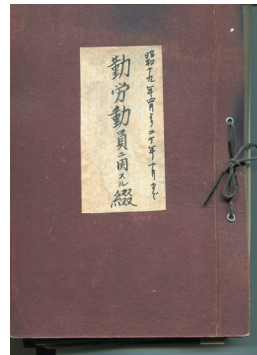 昭和十九年四月ヨリ二十年十月まで
勤労動員ニ関スル綴